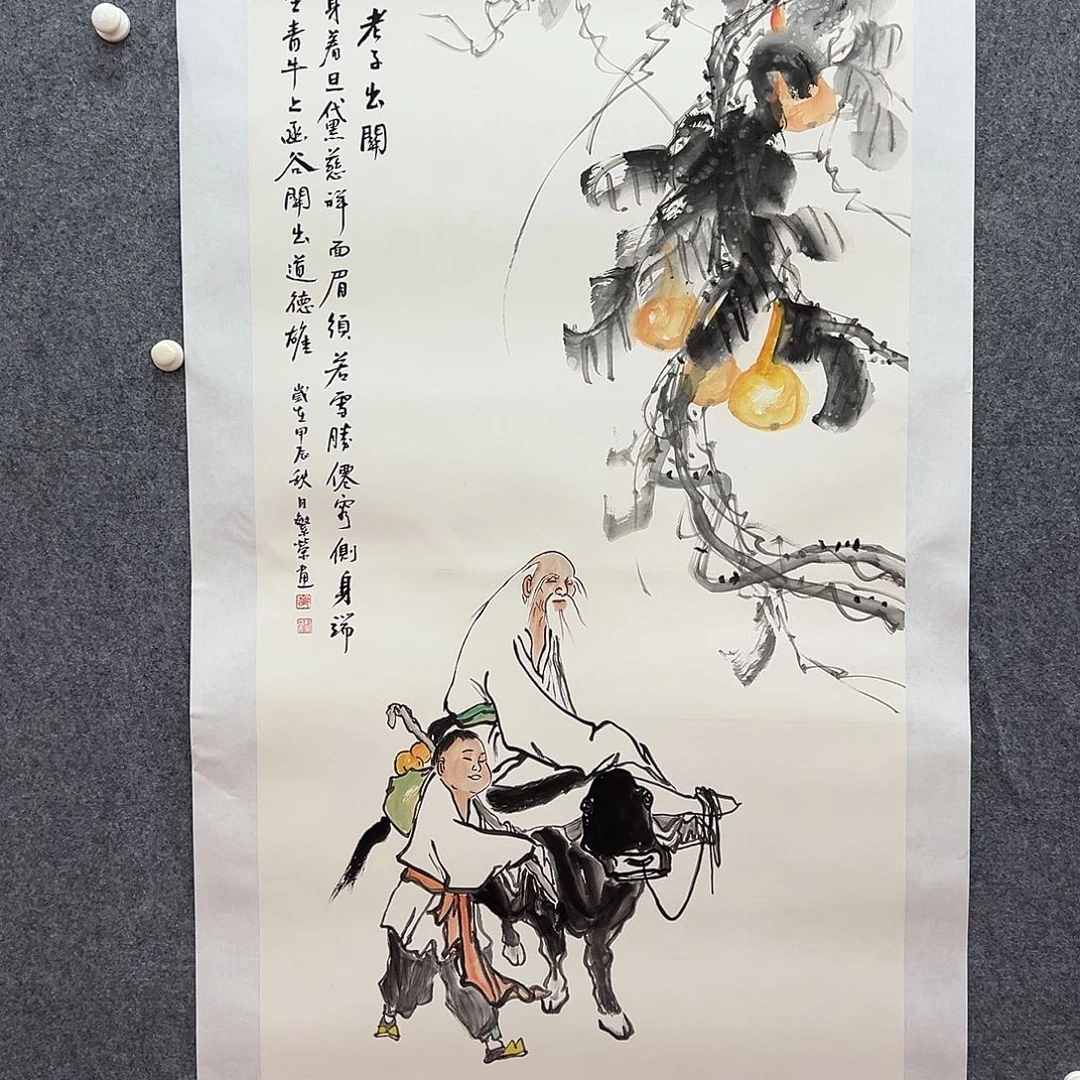 老子出關
身着旦黛慈祥面眉須若雪勝僊容側身端
坐青牛上函谷關出道德雄 歲在甲辰秋日繁榮畫